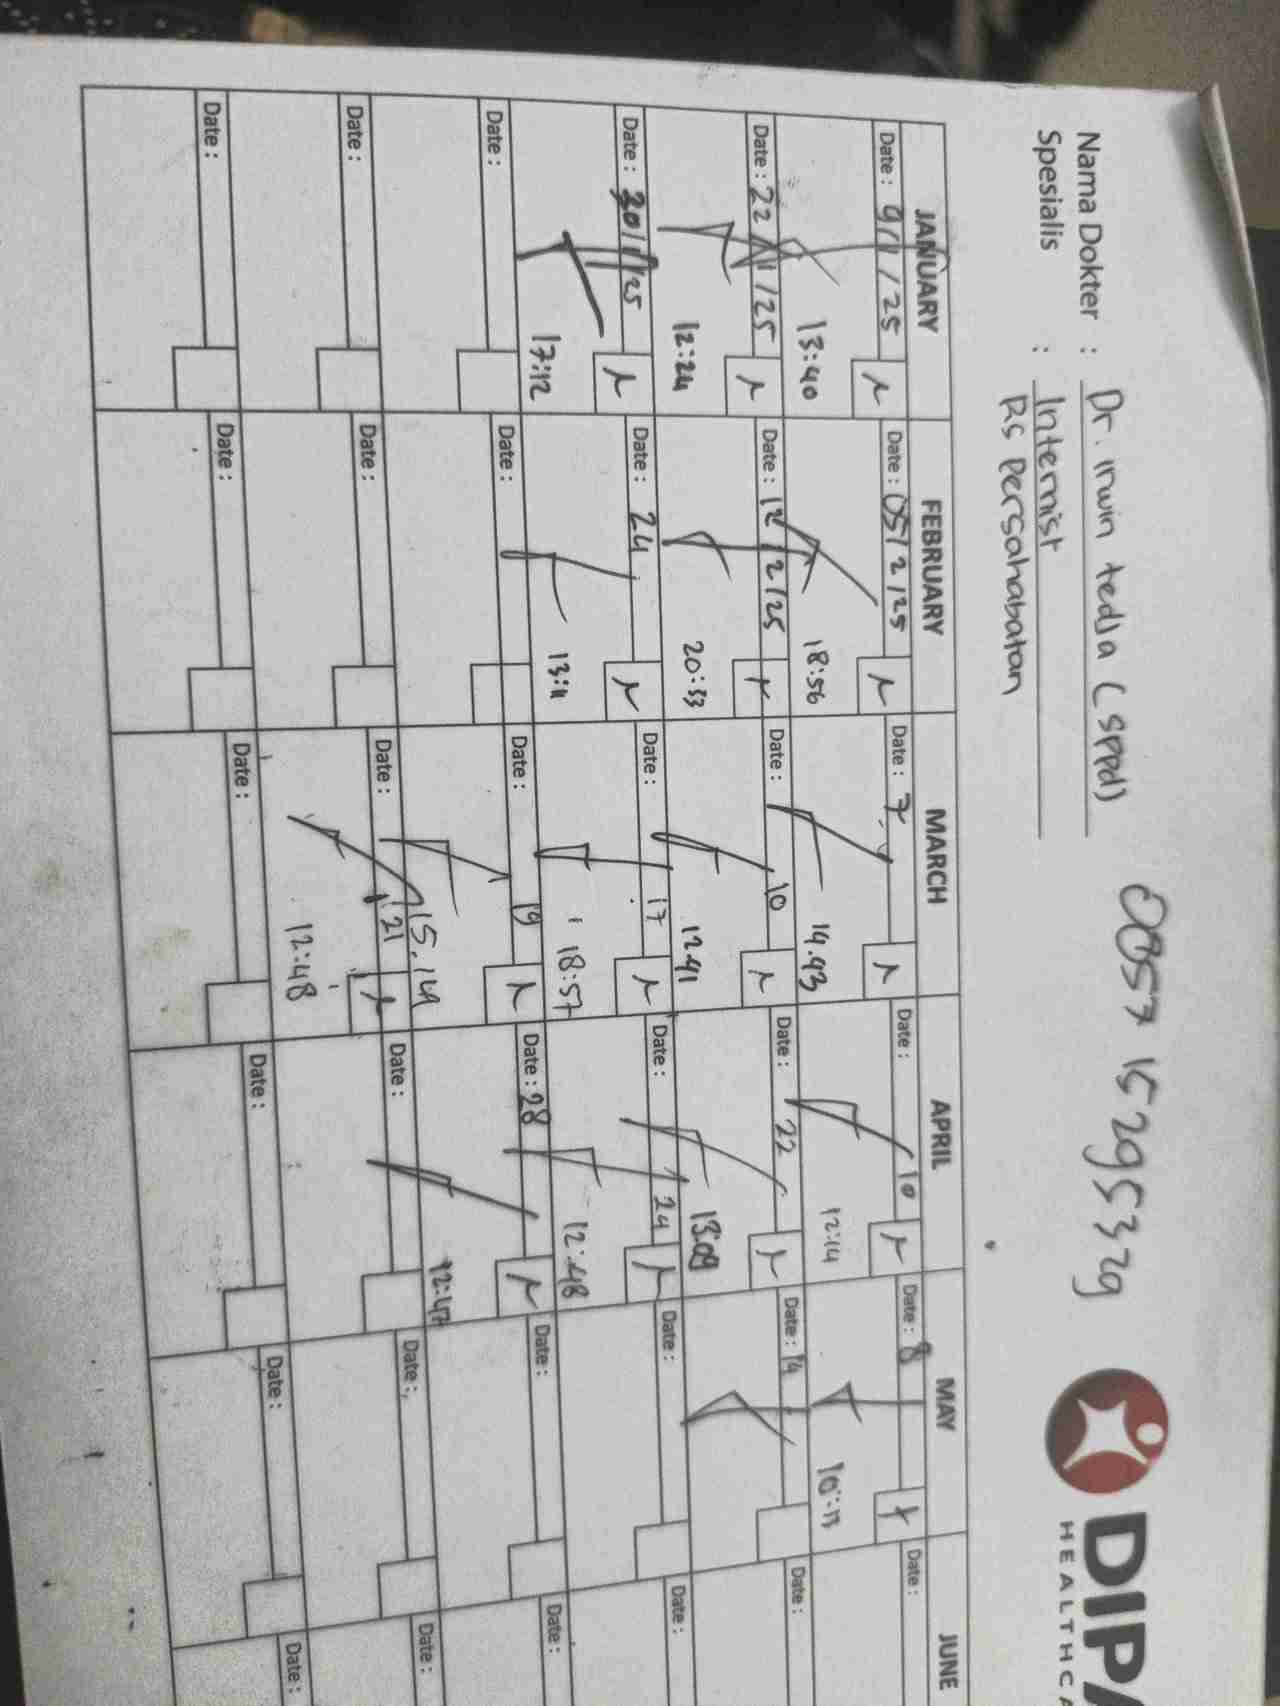 Nama Dokter : Dr. irwin tedja (sppd)
Spesialis : Internist
RS Persahabatan
DIPA
HEALTHCA
JANUARY FEBRUARY MARCH APRIL MAY JUNE
Date : 9/1/25 Date : 05/2/25 Date : 7 Date : 10 Date : 8 Date :
13:40 18:56 14.43 12:14 10:13
Date : 22/1/25 Date : 12/2/25 Date : 10 Date : 22 Date : 14 Date :
12:24 20:33 12.41 13:09
Date : 30/1/25 Date : 24 Date : 17 Date : 24 Date : Date :
17:12 13:11 18:57 12:48
Date : Date : Date : 19 Date : 28 Date : Date :
15.14 12:47
Date : Date : Date : 21 Date : Date : Date :
12:48
Date : Date : Date : Date : Date : Date :